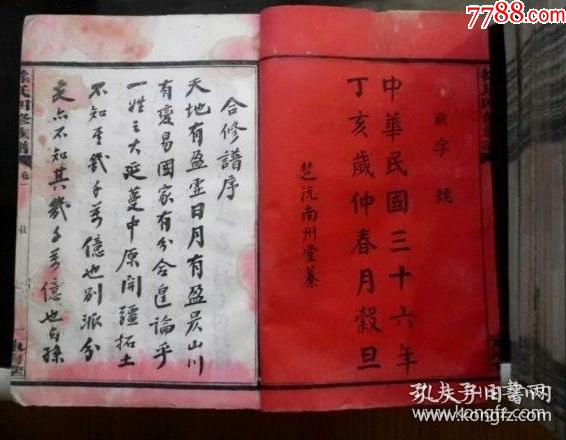 7788.com
中華民國三十六年
丁亥歲仲春月穀旦
字號
楚沅南州堂纂
合修譜序
天地有盈虛日月有盈昃山川
有變易國家有分合遑論乎
一姓之大延蔓中原開疆拓土
不知其幾千萬億也別派分
支亦不知其幾千萬億也自孫
徐氏四修族譜
卷一
孔夫子旧书网
www.kongfz.com